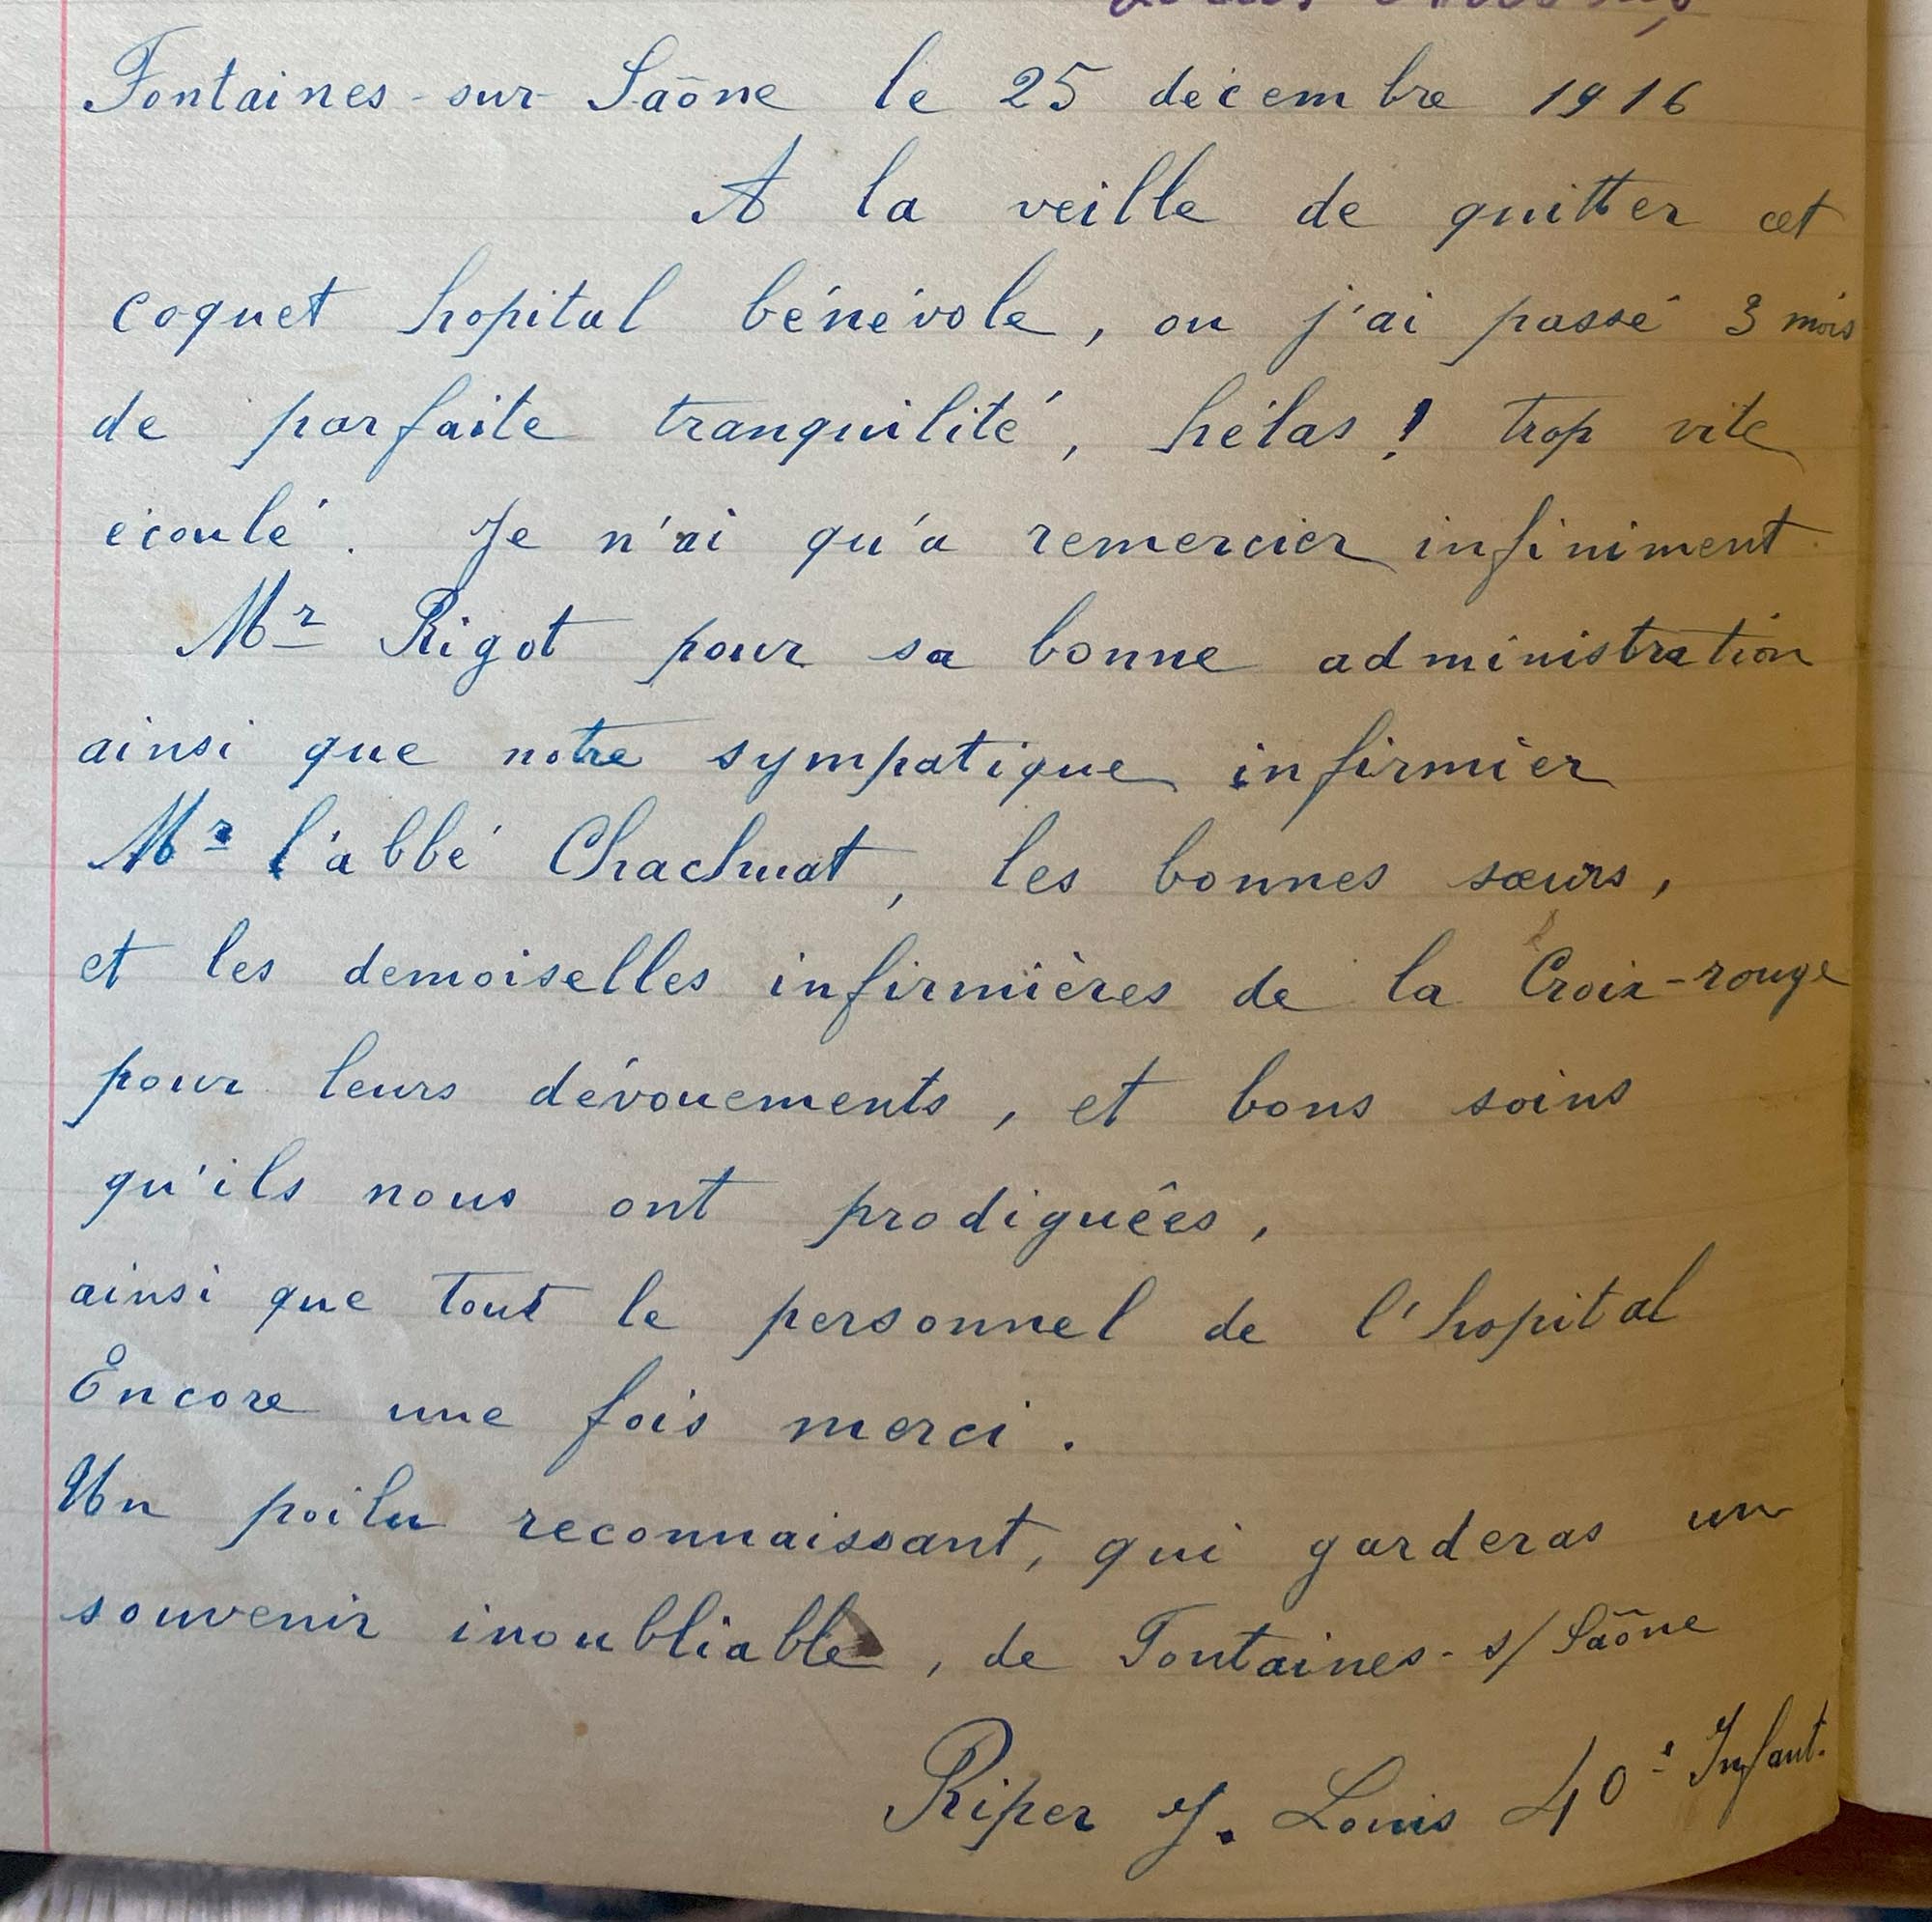 Fontaines-sur-Saône le 25 décembre 1916
A la veille de quitter cet
coquet hopital bénévole, ou j'ai passé 3 mois
de parfaite tranquilité, hélas ! trop vite
écoulé. Je n'ai qu'a remercier infiniment
Mr Rigot pour sa bonne administration
ainsi que notre sympatique infirmier
Mr l'abbé Chachuat, les bonnes sœurs,
et les demoiselles infirmières de la Croix-rouge
pour leurs dévouements, et bons soins
qu'ils nous ont prodiguées,
ainsi que tout le personnel de l'hopital
Encore une fois merci.
Un poilu reconnaissant, qui garderas un
souvenir inoubliable, de Fontaines-s/Saône
Riper J. Louis 40e Infant.